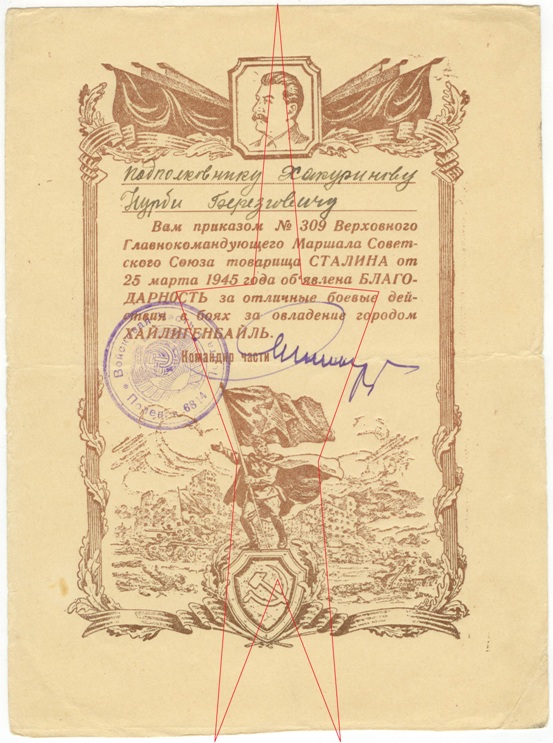 Подполковнику Хакуринову
Нурби Березговичу
Вам приказом № 309 Верховного
Главнокомандующего Маршала Совет-
ского Союза товарища СТАЛИНА от
25 марта 1945 года об'явлена БЛАГО-
ДАРНОСТЬ за отличные боевые дей-
ствия в боях за овладение городом
ХАЙЛИГЕНБАЙЛЬ.
Командир части